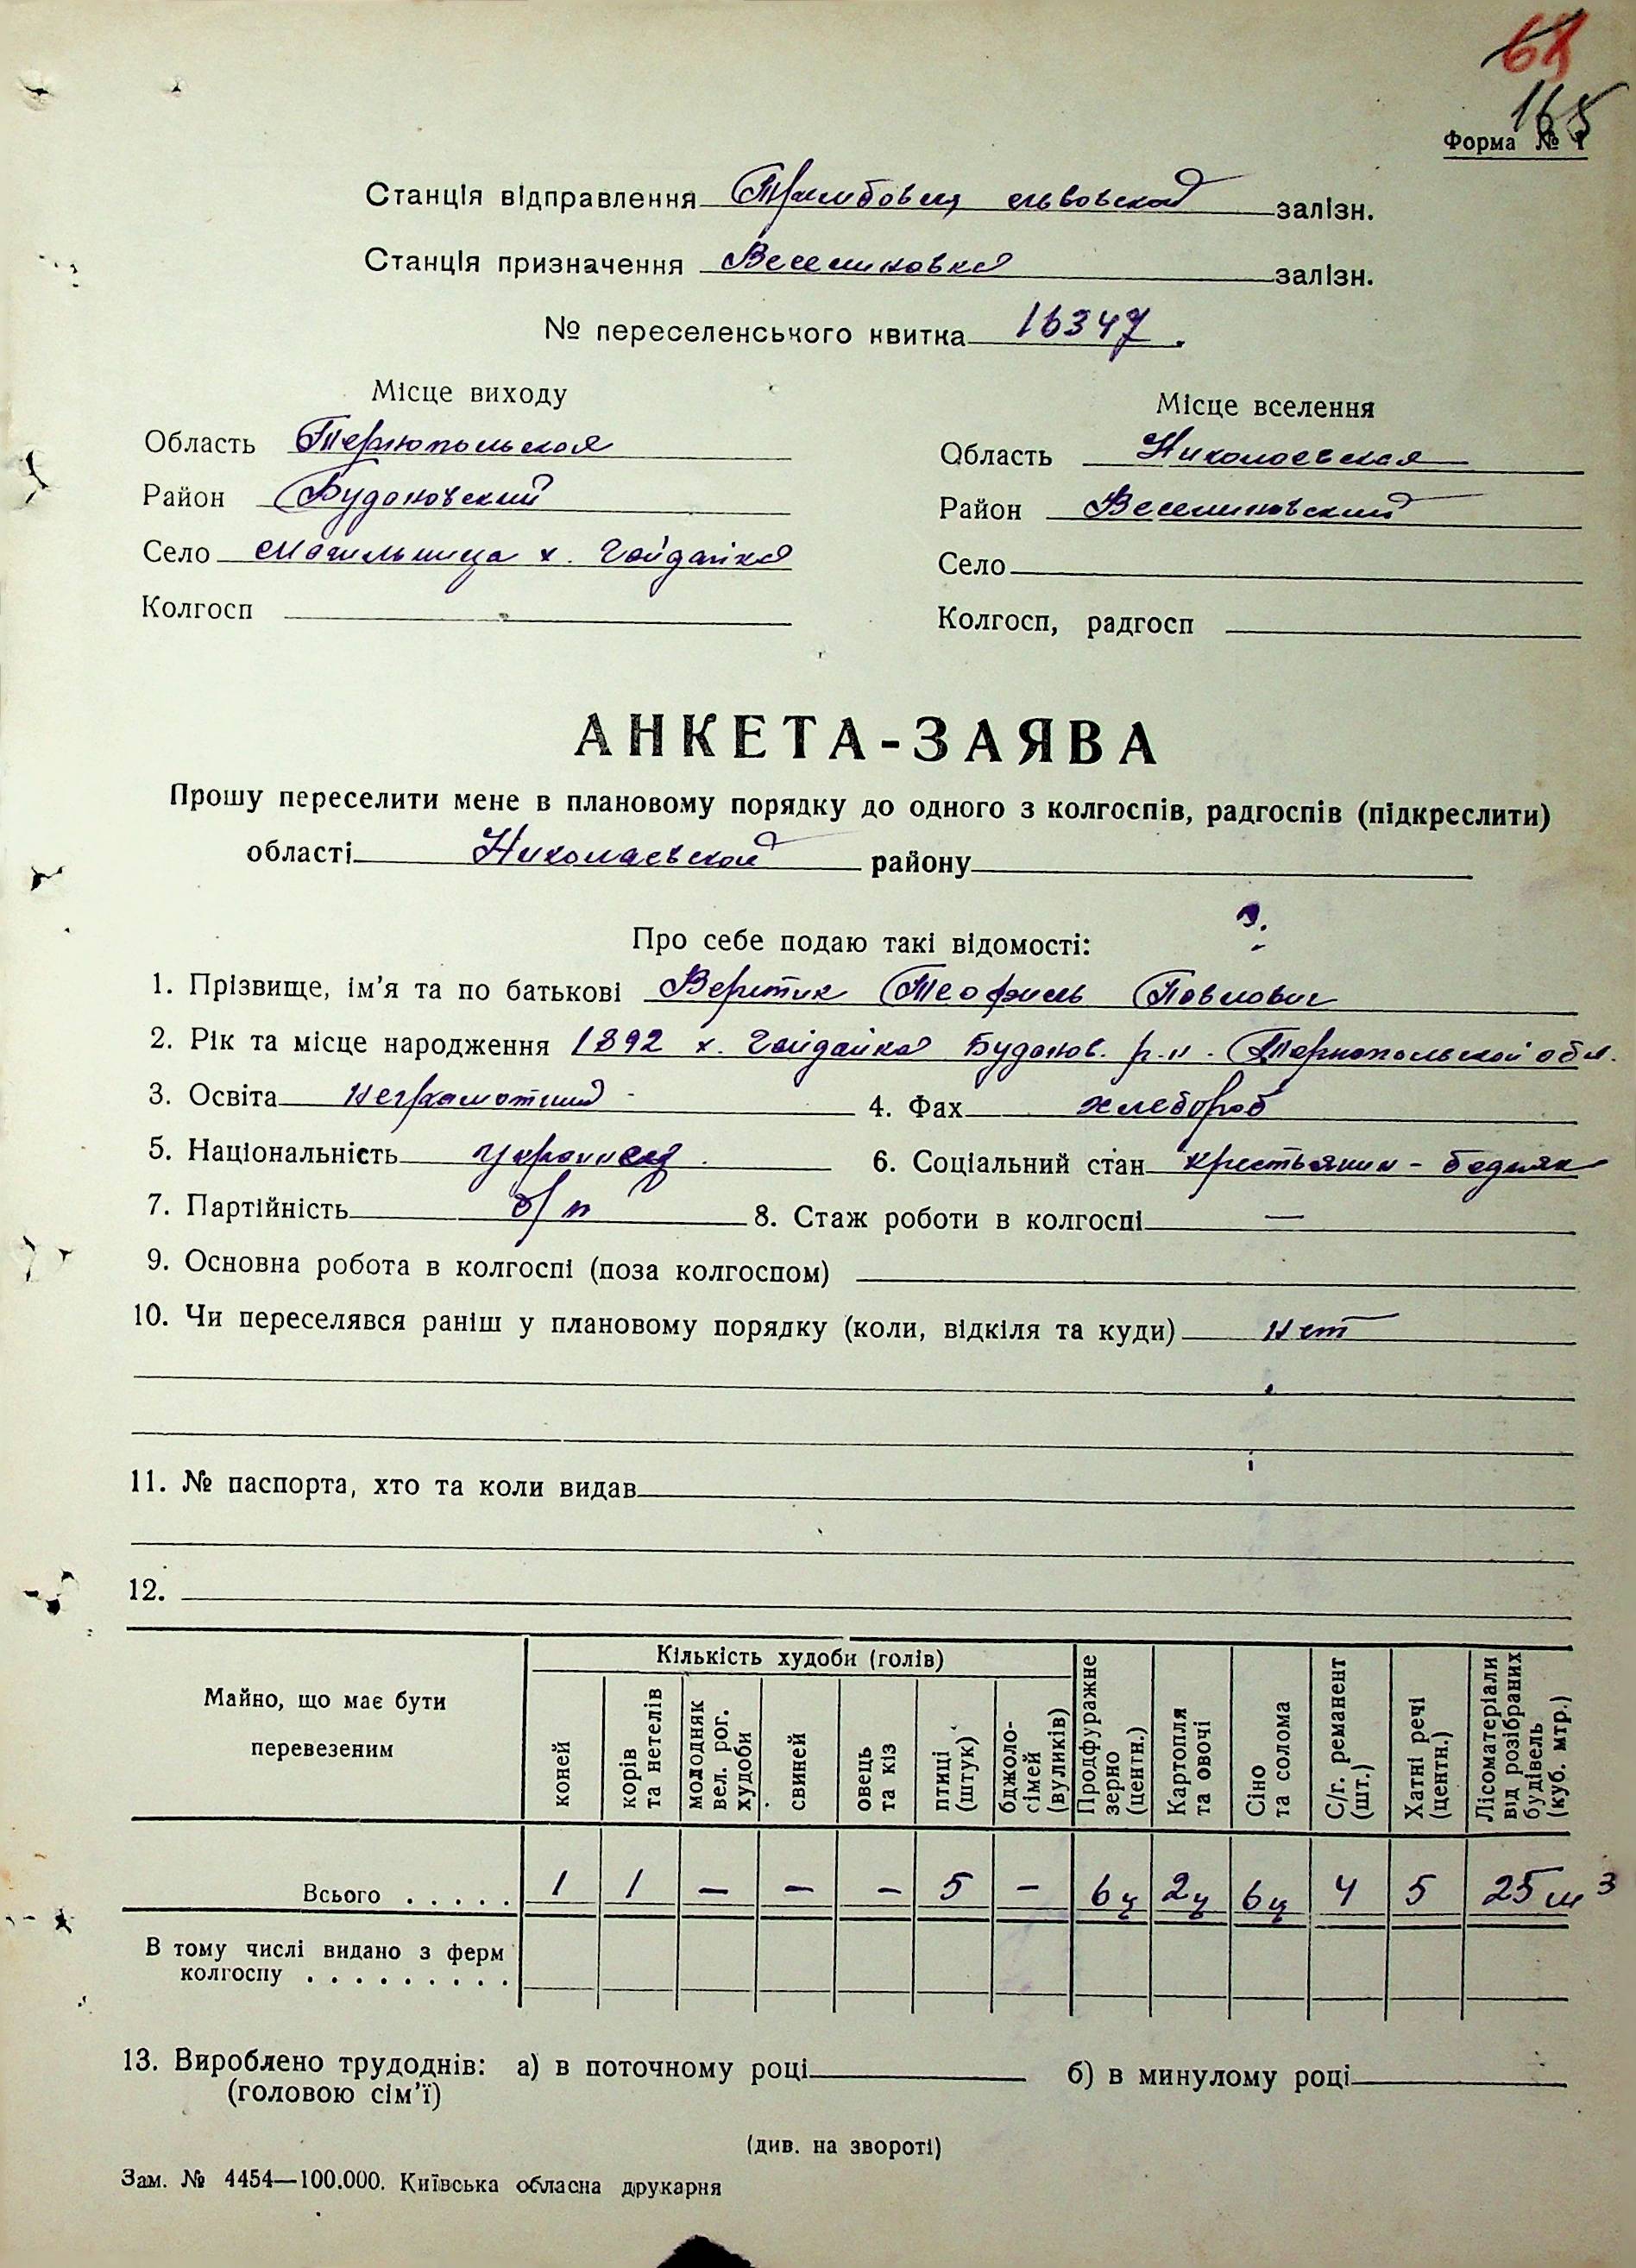 68
165
Форма № 1
Станція відправлення Трембовля Львовской залізн.
Станція призначення Веселиновка залізн.
№ переселенського квитка 16347.
Місце виходу
Місце вселення
Область Тернопольская
Область Николаевская
Район Будоновский
Район Веселиновский
Село Могильница х. Гайдайка
Село
Колгосп
Колгосп, радгосп
АНКЕТА-ЗАЯВА
Прошу переселити мене в плановому порядку до одного з колгоспів, радгоспів (підкреслити)
області Николаевской району
Про себе подаю такі відомості:
1. Прізвище, ім'я та по батькові Верстик Теофиль Павлович
2. Рік та місце народження 1892 х. Гайдайка Буданов. р-н. Тернопольской обл.
3. Освіта неграмотний 4. Фах хлебороб
5. Національність украинец. 6. Соціальний стан крестьянин - бедняк
7. Партійність б/п 8. Стаж роботи в колгоспі —
9. Основна робота в колгоспі (поза колгоспом)
10. Чи переселявся раніш у плановому порядку (коли, відкіля та куди) нет
11. № паспорта, хто та коли видав
12.
Майно, що має бути перевезеним
Кількість худоби (голів)
коней
корів та нетелів
молодняк вел. рог. худоби
свиней
овець та кіз
птиці (штук)
бджоло-сімей (вуликів)
Продфуражне зерно (центн.)
Картопля та овочі
Сіно та солома
С/г. реманент (шт.)
Хатні речі (центн.)
Лісоматеріали від розібраних будівель (куб. мтр.)
Всього . . . . . 1 1 — — — 5 — 6ц 2ц 6ц 4 5 25 м³
В тому числі видано з ферм
колгоспу . . . . . . . . .
13. Вироблено трудоднів: а) в поточному році б) в минулому році
(головою сім'ї)
(див. на звороті)
Зам. № 4454—100.000. Київська обласна друкарня